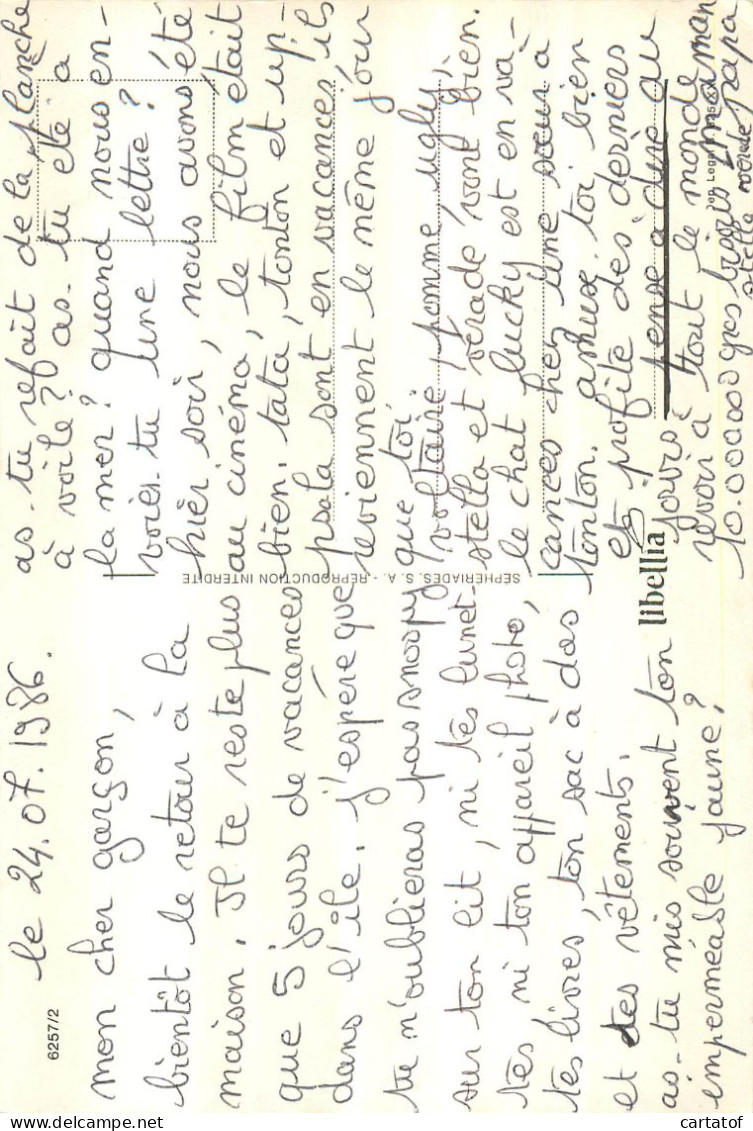 6257/2
le 24.07.1986.
mon cher garçon,
bientôt le retour à la
maison. Il te reste plus
que 5 jours de vacances
dans l'île. j'espère que
tu n'oublieras pas snoopy
sur ton lit, ni tes lunet-
tes, ni ton appareil photo,
tes livres, ton sac à dos
et tes vêtements.
as-tu mis souvent ton
imperméable jaune?
as-tu refait de la planche
à voile? as-tu été à
la mer? quand nous en-
voies-tu une lettre?
hier soir, nous avons été
au cinéma, le film était
bien. tata, tonton et up-
psala sont en vacances, ils
reviennent le même jour
que toi.
voltaire, pomme, ugly,
stella et vérade vont bien.
le chat lucky est en va-
cances chez une sœur à
tonton. amuse-toi bien
et profite des derniers
jours
pense à dire au
revoir à tout le monde
10.000000 gros bisous maman
papa
SEPHERIADES. S. A. - REPRODUCTION INTERDITE
libellia
cartatof